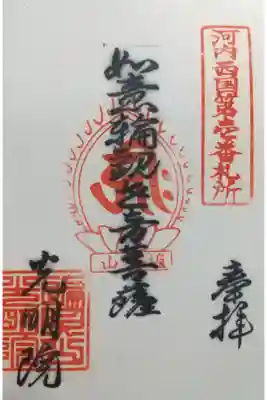 河内西国第壱番札所
奉拝
如意輪観世音菩薩
光明院